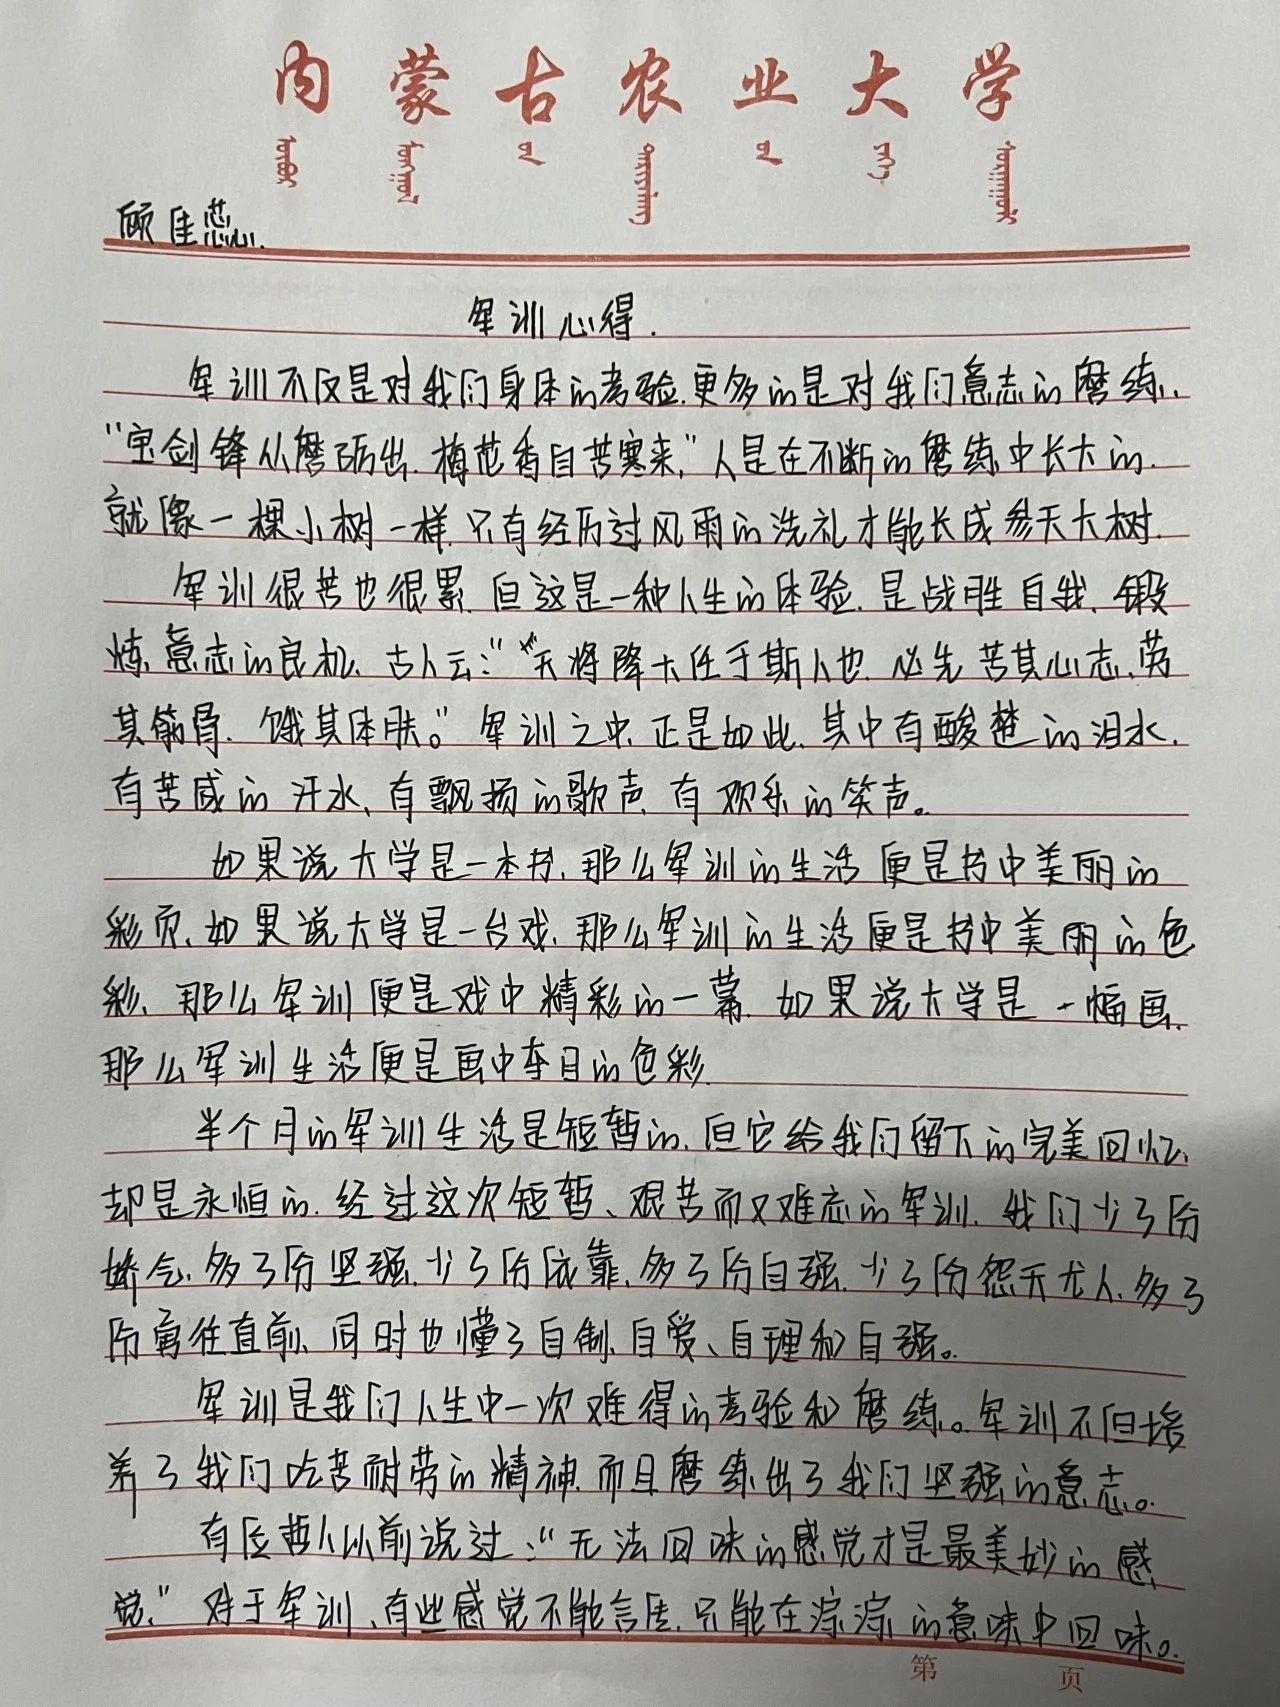 内蒙古农业大学
顾佳蕊
军训心得.
军训不仅是对我们身体的考验.更多的是对我们意志的磨练.
"宝剑锋从磨砺出.梅花香自苦寒来."人是在不断的磨练中长大的.
就像一棵小树一样.只有经历过风雨的洗礼才能长成参天大树.
军训很苦也很累.但这是一种人生的体验.是战胜自我、锻
炼意志的良机、古人云:"天将降大任于斯人也.必先苦其心志、劳
其筋骨.饿其体肤。"军训之中.正是如此.其中有酸楚的泪水.
有苦咸的汗水、有飘扬的歌声.有欢乐的笑声。
如果说大学是一本书、那么军训的生活便是书中美丽的
彩页.如果说大学是一台戏、那么军训的生活便是书中美丽的色
彩、那么军训便是戏中精彩的一幕.如果说大学是一幅画.
那么军训生活便是画中夺目的色彩.
半个月的军训生活是短暂的.但它给我们留下的完美回忆、
却是永恒的.经过这次短暂、艰苦而又难忘的军训.我们少了份
娇气、多了份坚强.少了份依靠、多了份自强.少了份怨天尤人、多了
份勇往直前、同时也懂了自制、自爱、自理和自强。
军训是我们人生中一次难得的考验和磨练。军训不但培
养了我们吃苦耐劳的精神.而且磨练出了我们坚强的意志。
有位哲人以前说过:"无法回味的感觉才是最美妙的感
觉."对于军训、有些感觉不能言传.只能在淙淙的意味中回味。
第 页